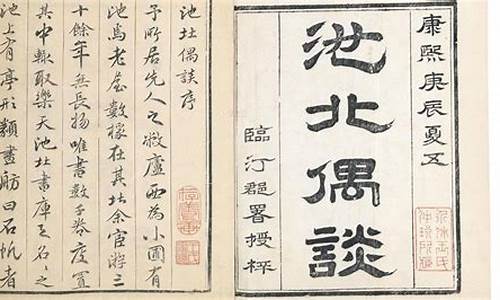 康熙庚辰夏五
池北偶談
臨汀郡署授梓
池北偶談序
予所居先人之敝廬西為小園有
池焉老屋數椽在其北余宦游三
十餘年無長物唯書數千卷庋置
其中輒取樂天池北書庫之名〻之
池上有亭形類畫舫曰石帆者